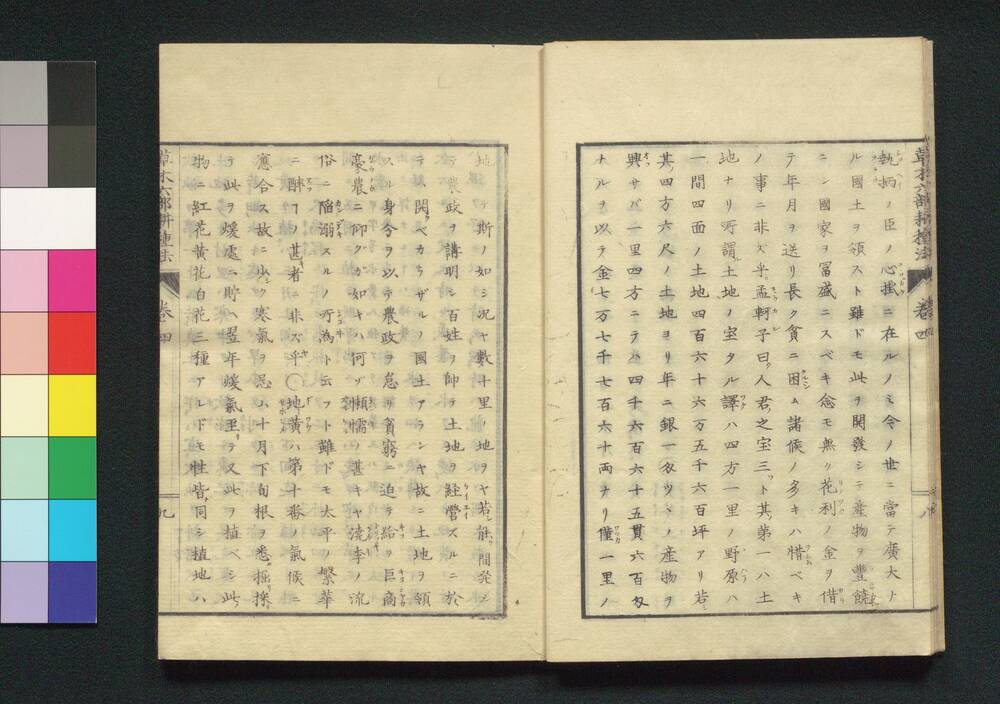 草木六部耕種法 巻四 八
執柄ノ臣ノ心掌ニ在ルノミ今ノ世ニ當テ廣大ト
ル國土ヲ領スト雖ドモ此ヲ開發シテ産物ヲ豐饒
ニシ國家ヲ冨盛ニスベキ念モ無ク花利ノ金ヲ借
テ年月ヲ送リ長ク貧ニ困ム諸候ノ多キハ惜ベキ
ノ事ニ非ズ乎孟軻子曰人君之宝三ト其第一ハ土
地ナリ所謂土地ノ宝タル譯ハ四方一里ノ野原ハ
一間四面ノ土地四百六十六万五千六百坪アリ若
其四方六尺ノ土地ヨリ年ニ銀一匁ツヽノ産物ヲ
興サバ一里四方ニテハ四千六百六十五貫六百匁
ナルヲ以テ金七万七千七百六十両ナリ僅一里ノ
地ナラ斯ノ如シ況ヤ數十里ノ地ヲヤ若能開発シ
テ農政ヲ講明シ百姓ヲ帥テ土地ヲ経營スルニ於
テハ関ベカラザルノ國土アランヤ故ニ土地ヲ領
スル身分ヲ以テ農政ヲ怠リ貧窮ニ迫テ給ヲ巨商
豪農ニ仰グガ如キハ何ゾ懶惰ノ甚キヤ澆季ノ流
俗ニ陥溺スルノ所為ト云フト雖ドモ太平ノ繁華
ニ醉フノ甚者ニ非ズ乎〇地黄ハ第十番ノ氣候ニ
應合ス故ニ少ク寒氣ヲ忌ム十月下旬根ヲ悉掘リ採
テ此ヲ煖處ニ貯ヘ翌年煖氣至テ又此ヲ植ベシ此
物ニ紅花黄花白花三種アレドモ性皆同シ植地ハ
草木六部耕種法 巻四 九